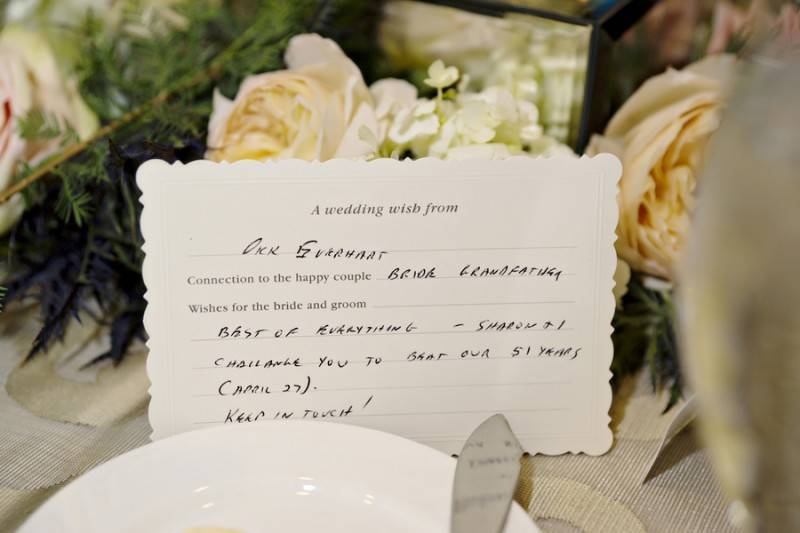 A wedding wish from
DICK EVERHART
Connection to the happy couple BRIDE GRANDFATHER
Wishes for the bride and groom
BEST OF EVERYTHING - SHARON & I
CHALLANGE YOU TO BEAT OUR 51 YEARS
(APRIL 27).
KEEP IN TOUCH!